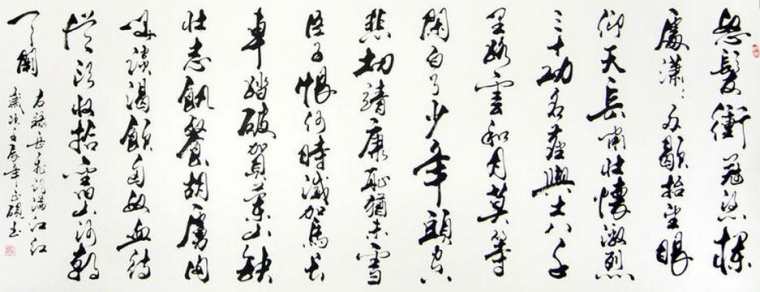 怒髮衝冠憑欄
處瀟々雨歇抬望眼
仰天長嘯壯懷激烈
三十功名塵與土八千
里路雲和月莫等
閑白了少年頭空
悲切靖康恥猶未雪
臣子恨何時滅駕長
車踏破賀蘭山缺
壯志飢餐胡虜肉
笑談渴飲匈奴血待
從頭收拾舊山河朝
天闕
右錄岳飛詞滿江紅
歲次壬辰年